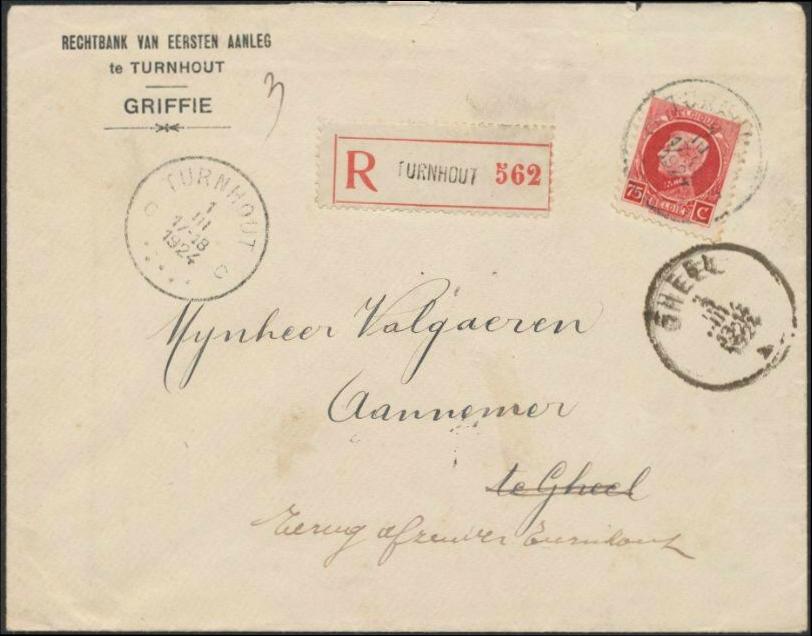 RECHTBANK VAN EERSTEN AANLEG
te TURNHOUT
GRIFFIE
3
R TURNHOUT 562
BELGIQUE
75 C
BELGIË
TURNHOUT
1
III
17-18
1924
C C
GHEEL
III
1924
Mynheer Valgaeren
Aannemer
te Gheel
Terug afzender Turnhout